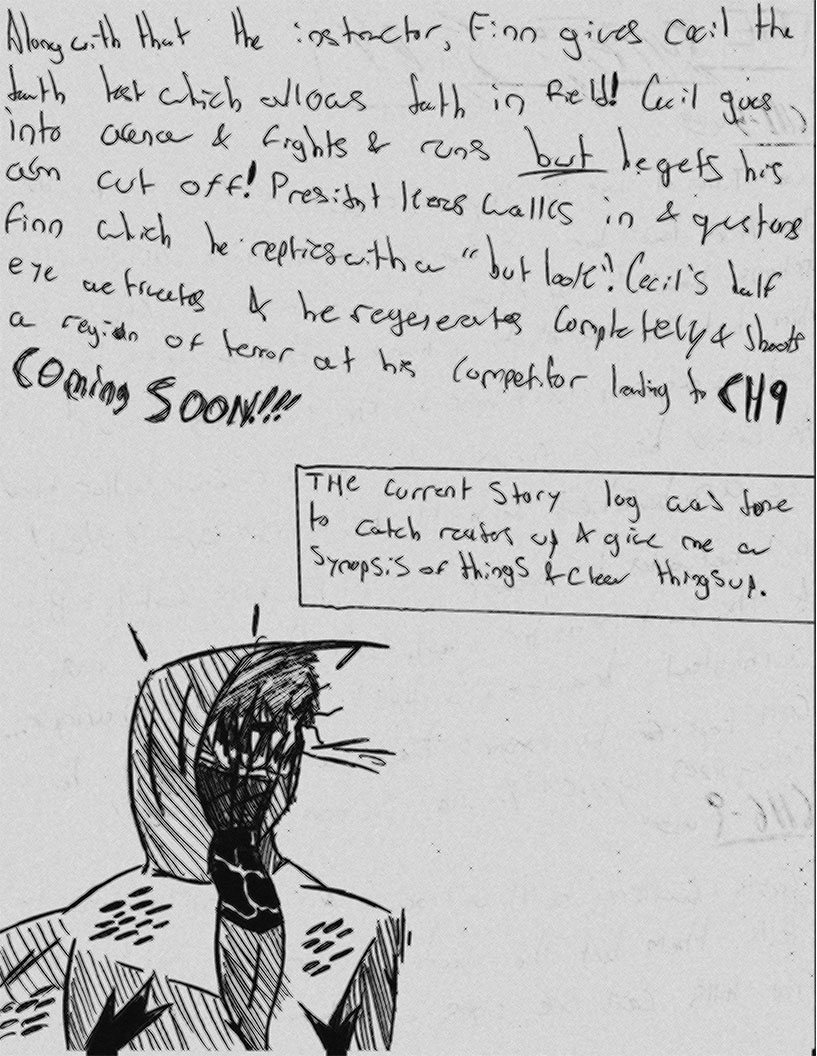 Along with that the instructor, Finn gives Cecil the
death test which allows death in field! Cecil goes
into arena & fights & runs but he gets his
arm cut off! President walks in & questions
Finn which he replies with a "but look"! Cecil's half
eye activates & he regenerates completely & shoots
a region of terror at his competitor leading to CH9
COMING SOON!!!
THE current story log was done
to catch readers up & give me a
synopsis of things & clear things up.
CH6-9